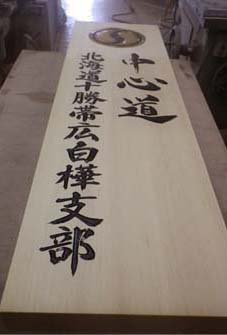 中心道
北海道十勝帯広白樺支部